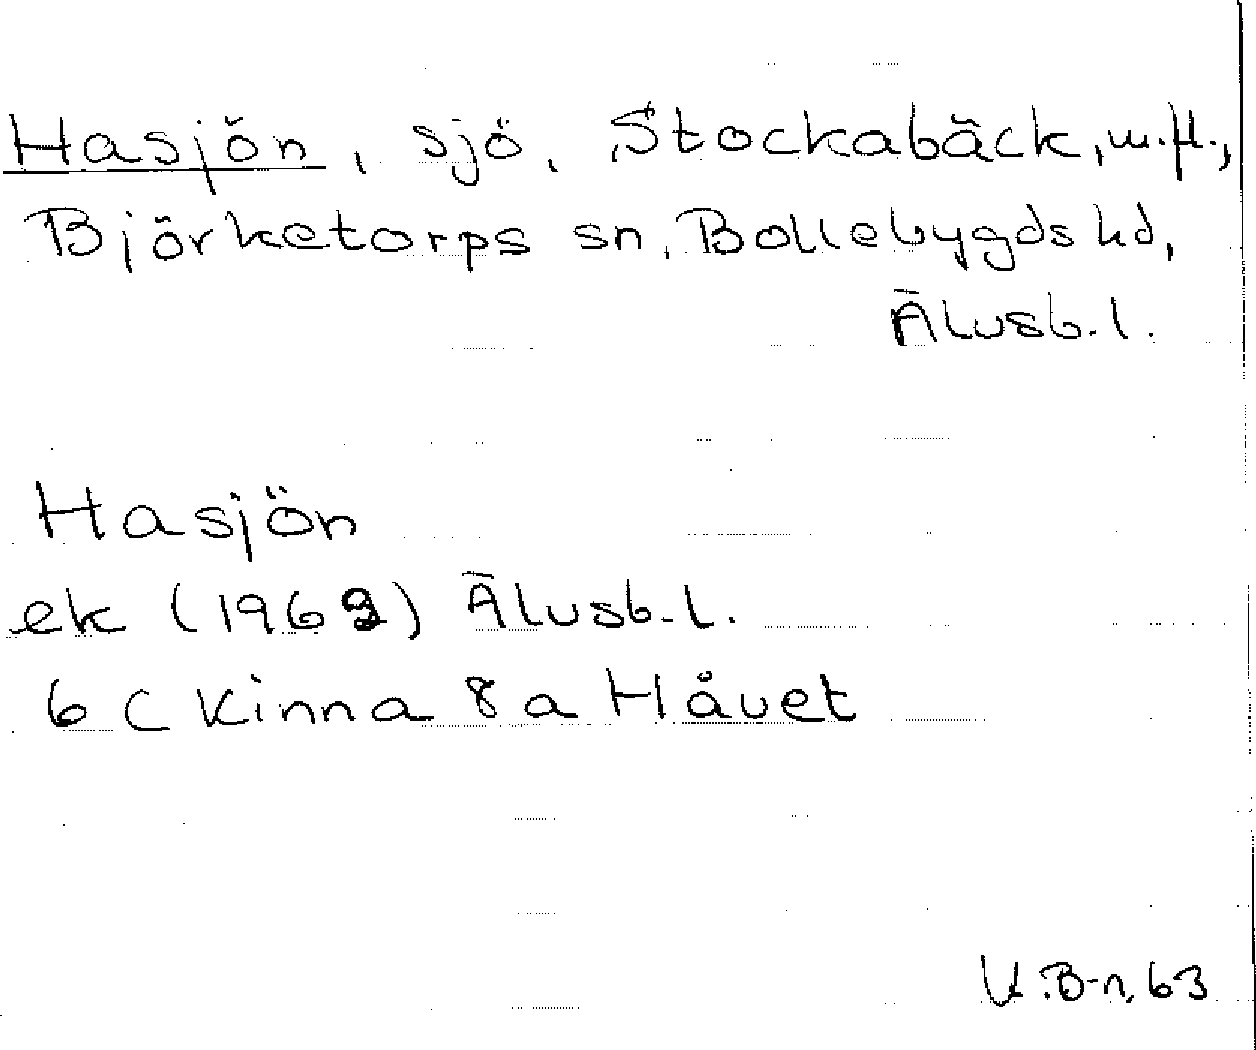 Hasjön, sjö, Stockabäck, m.fl.,
Björketorps sn, Bollebygds hd,
Älvsb.l.
Hasjön
ek (1963) Älvsb.l.
6 C Kinna 8 a Håvet
K.B-n, 63